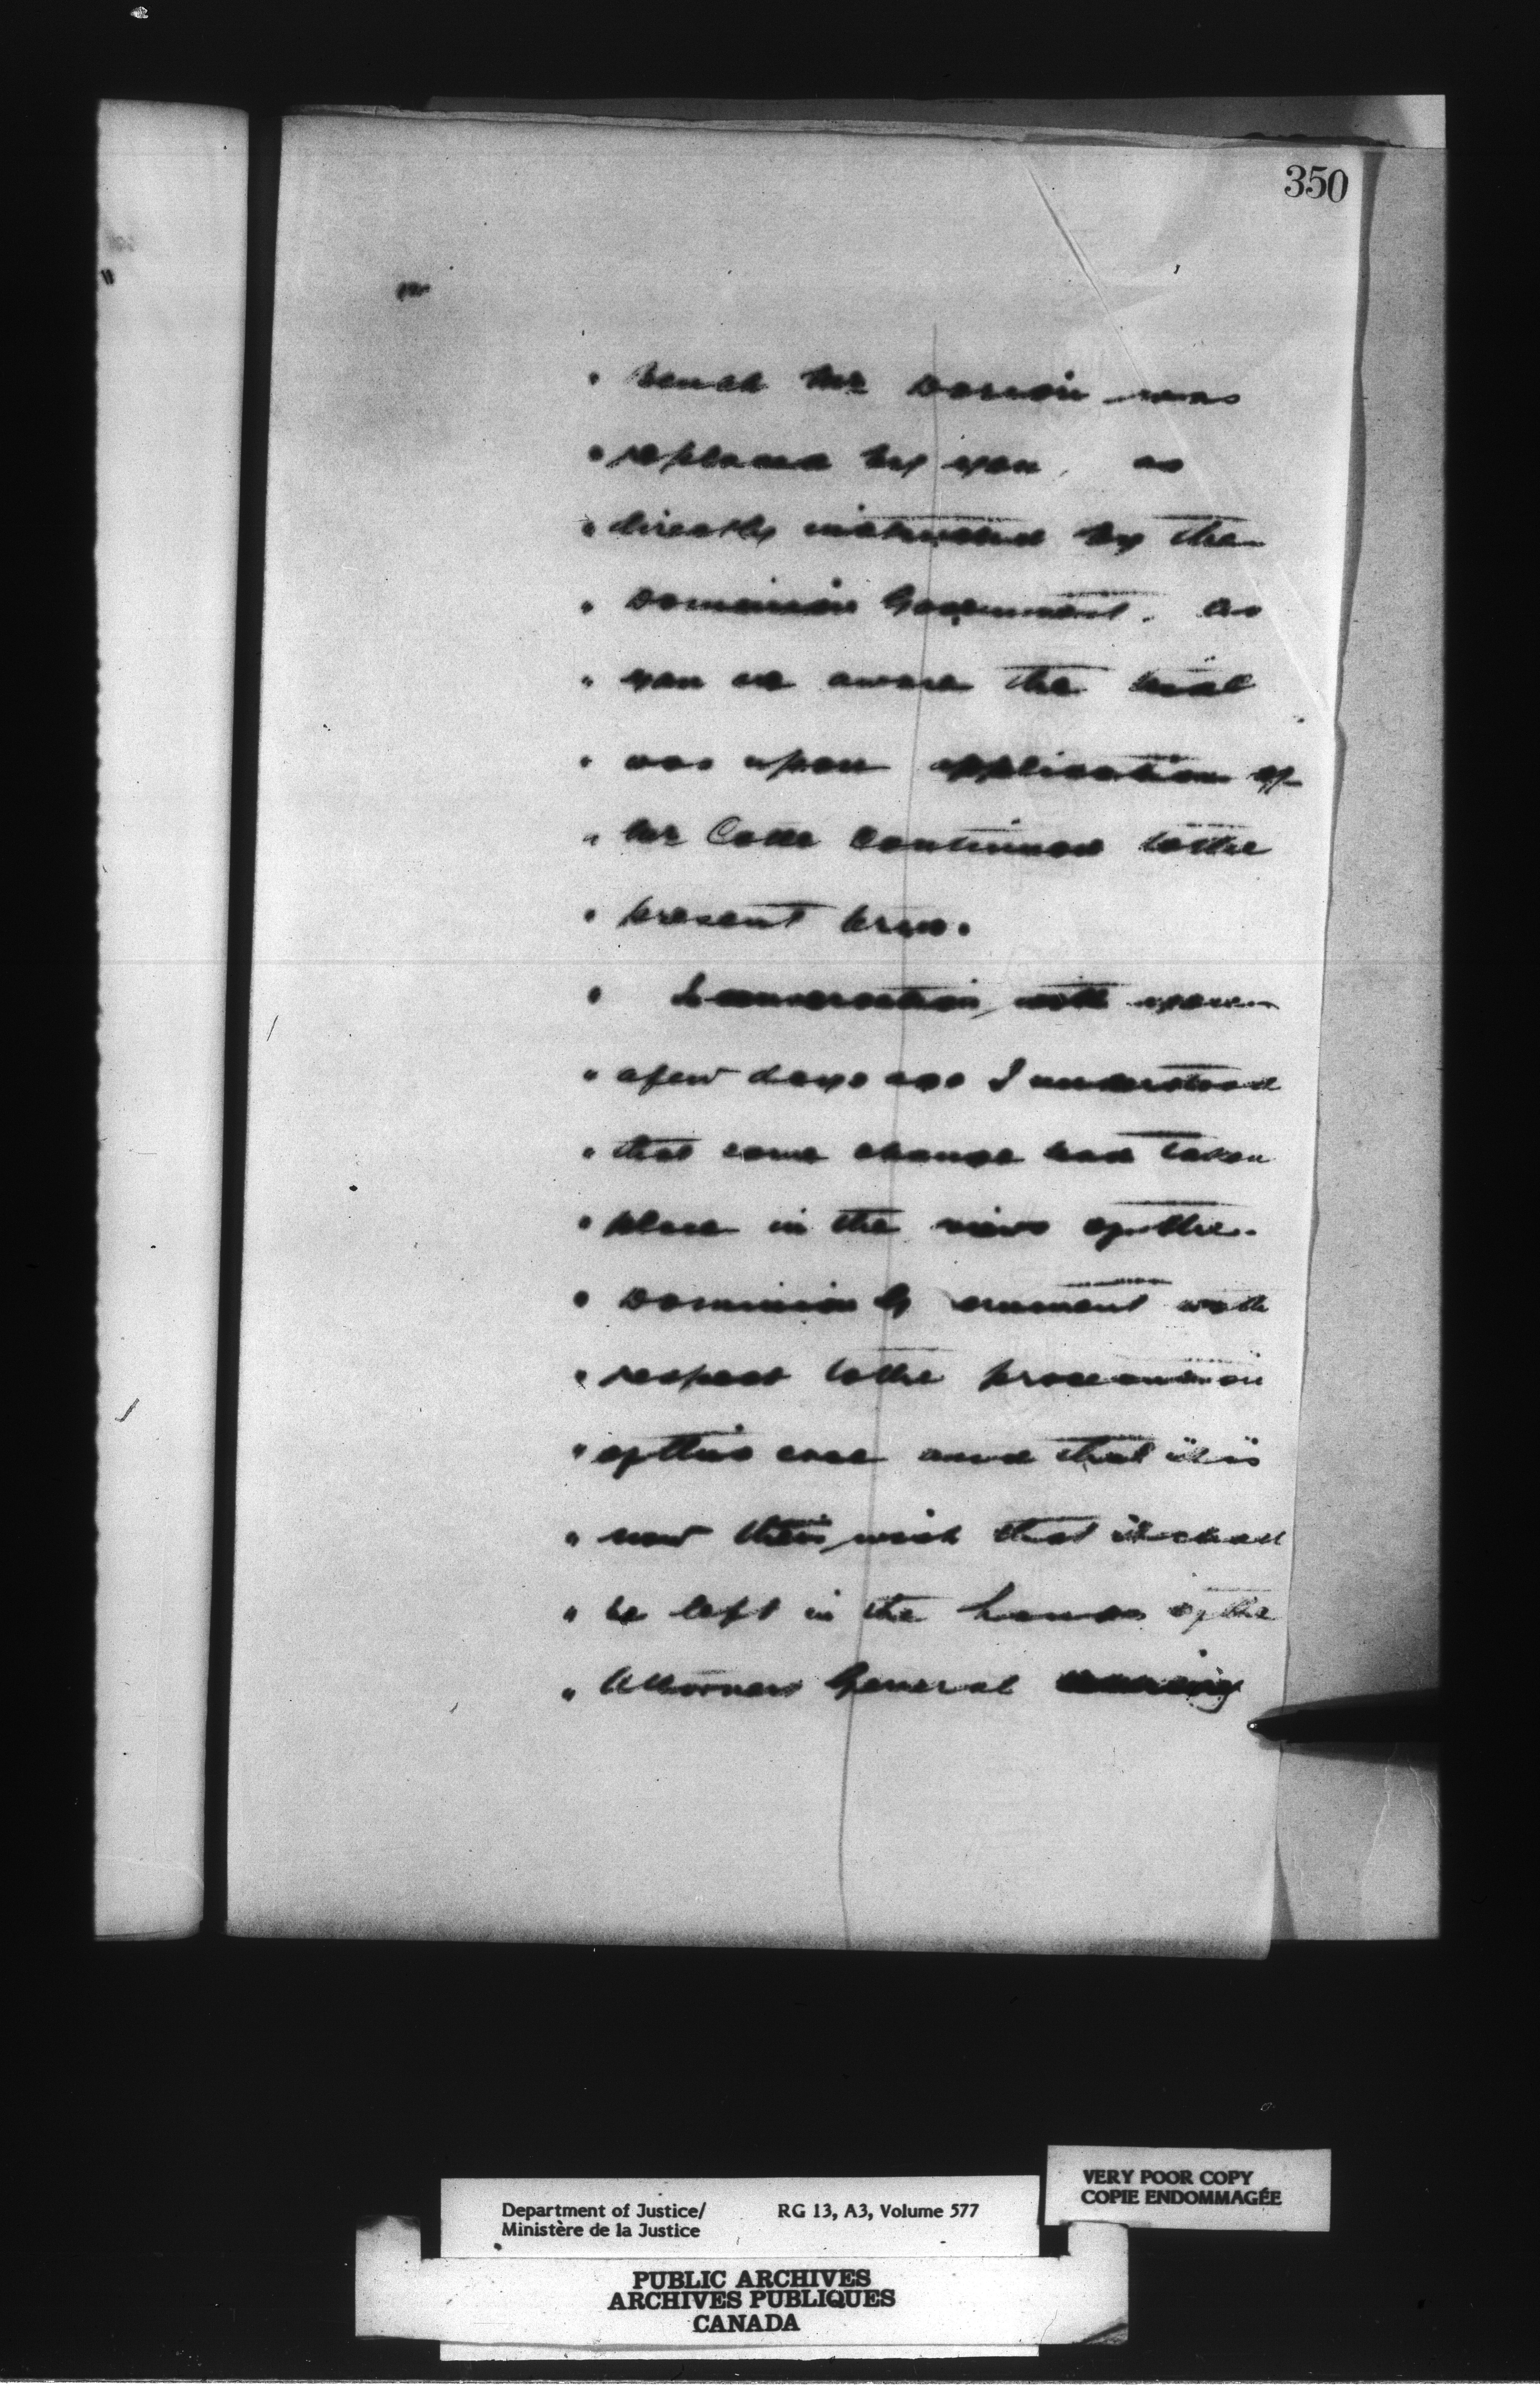 350
" bench Mr Dorion was
" replaced by you, as
" directly instructed by the
" Dominion Government. As
" you are aware the trial
" was upon application of
" Mr continued to the
" present term.
" In conversation with you
" a few days ago I understood
" that some change had taken
" place in the views of the
" Dominion Government with
" respect to the prosecution
" of this case and that it is
" now their wish that it shall
" be left in the hands of the
" Attorney General
VERY POOR COPY
COPIE ENDOMMAGÉE
Department of Justice/ RG 13, A3, Volume 577
Ministère de la Justice
PUBLIC ARCHIVES
ARCHIVES PUBLIQUES
CANADA